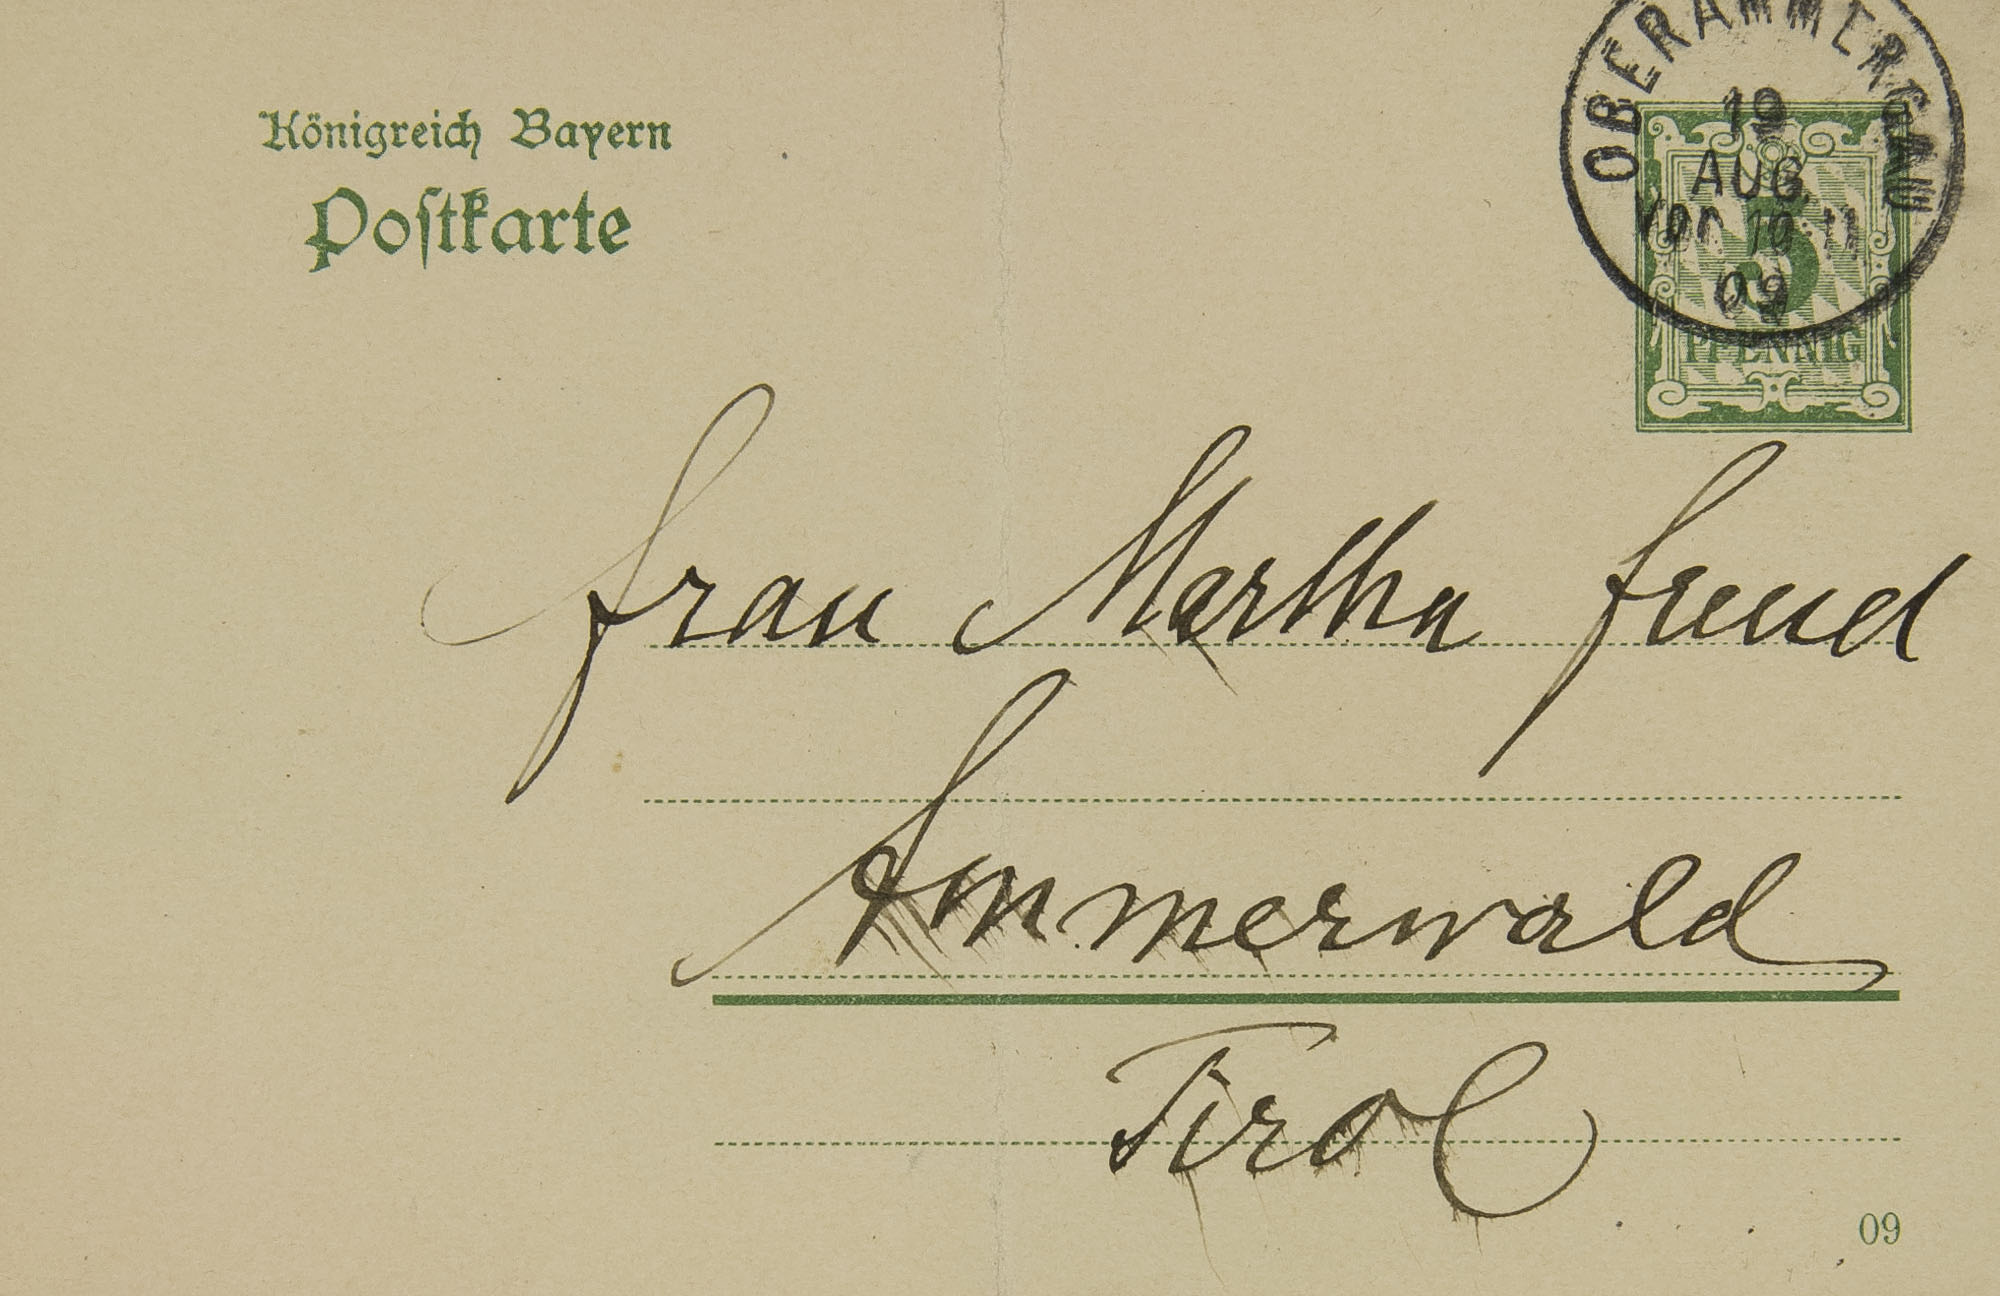 Königreich Bayern
Postkarte
OBERAMMERGAU
19
AUG.
VOR. 10-11
09
5
PFENNIG
Frau Martha Freud
Ammerwald
Tirol
09